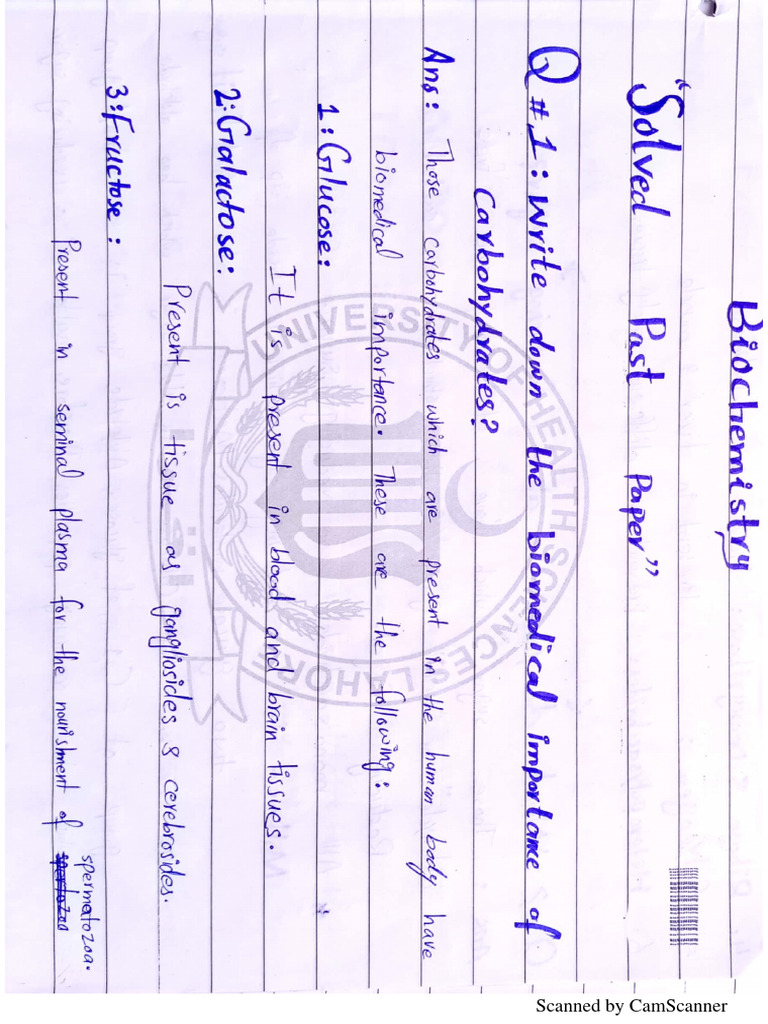 Biochemistry
"Solved Past Paper"
Q#.1: Write down the biomedical importance of
Carbohydrates?
Ans: Those carbohydrates which are present in the human body have
biomedical importance. These are the following:
1: Glucose:
It is present in blood and brain tissues.
2: Galactose:
Present is tissue as gangliosides & cerebrosides.
3: Fructose:
Present in seminal plasma for the nourishment of spermatozoa.
UNIVERSITY OF HEALTH SCIENCES LAHORE
Scanned by CamScanner